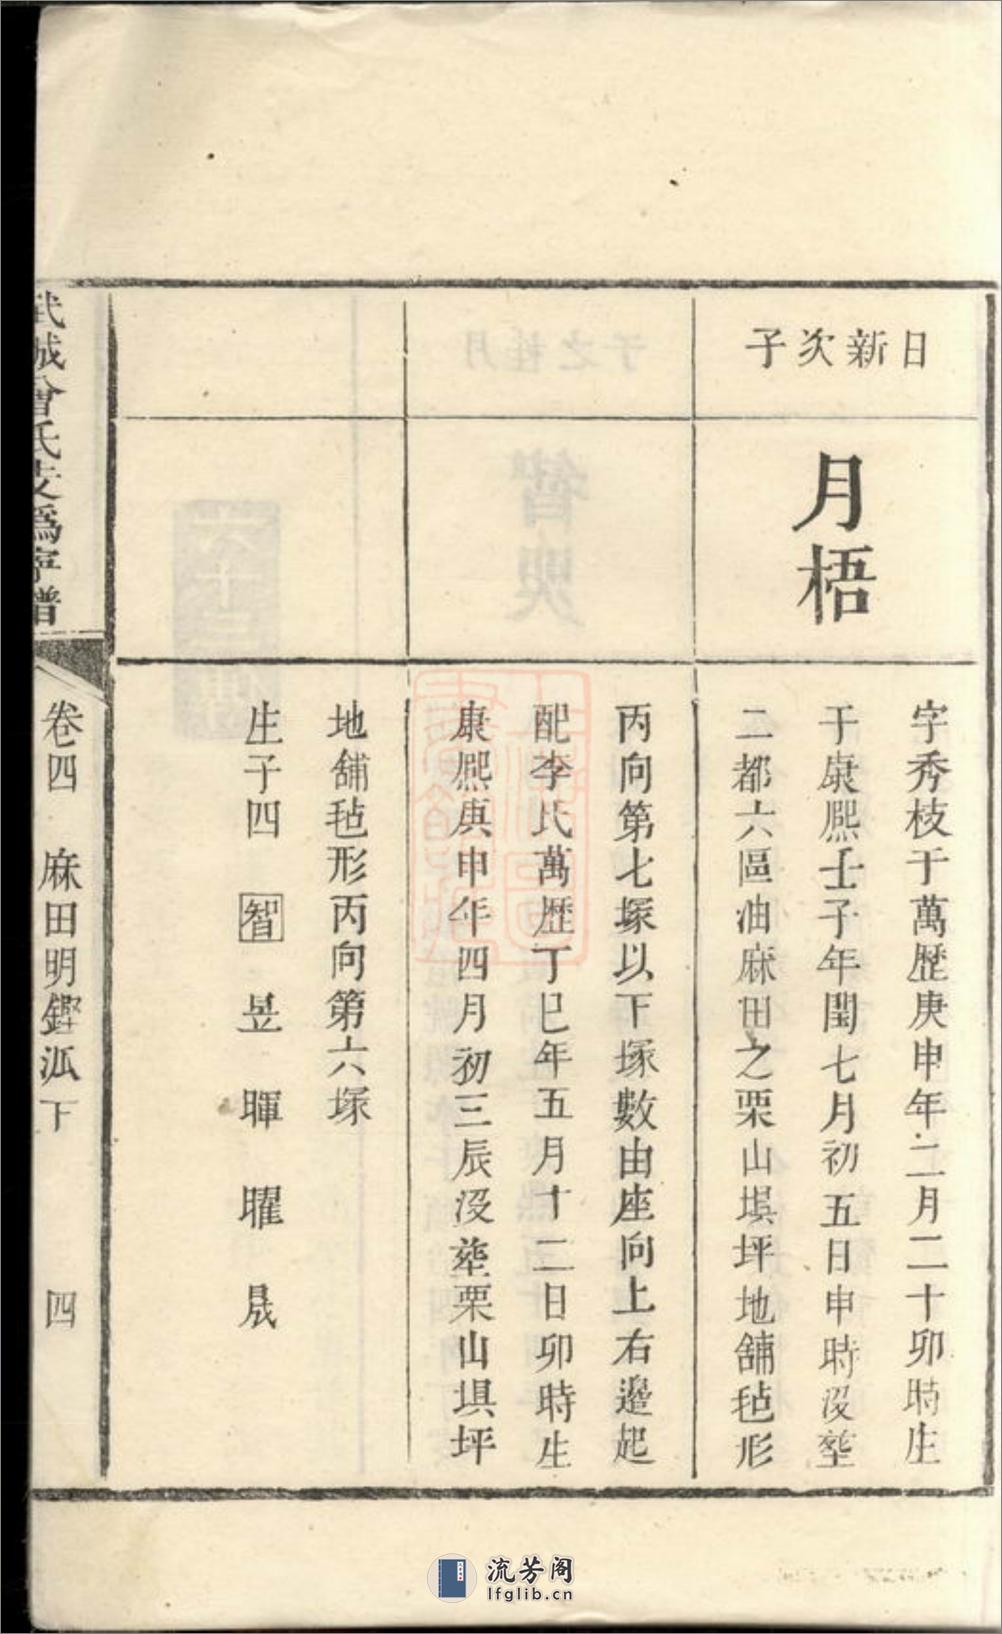 日新次子
月梧
字秀枝于萬歷庚申年二月二十卯時生
于康熙壬子年閏七月初五日申時没塟
二都六區油麻田之栗山塤坪地舖毡形
丙向第七塚以下塚數由座向上右邉起
配李氏萬歷丁巳年五月十二日卯時生
康熙庚申年四月初三辰没塟栗山塤坪
地舖毡形丙向第六塚
生子四 智 昱 暉 曜 晟
武城曾氏支為寧譜
卷四 麻田明鏗派下 四
流芳阁
lfglib.cn